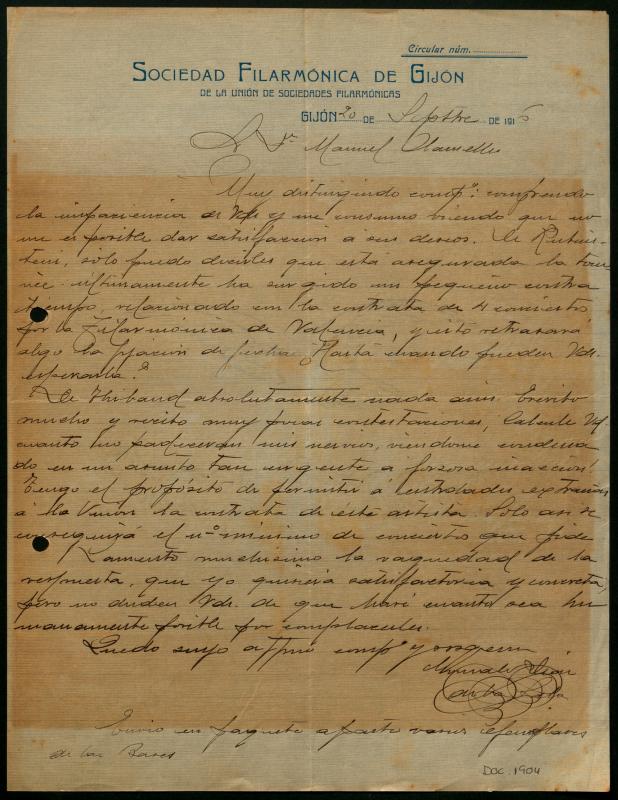 Circular núm.
SOCIEDAD FILARMÓNICA DE GIJÓN
DE LA UNIÓN DE SOCIEDADES FILARMÓNICAS
GIJÓN 20 DE Sepbre DE 1915
S. Dr Manuel Clausells
Muy distinguido compº: comprendo
la impaciencia de Vds y me consumo viendo que no
me es posible dar satisfacción á sus deseos. De Rubins-
tein, solo puedo decirles que está asegurada la tour-
née. Ultimamente ha surgido un pequeño contra
tiempo, relacionado con la contrata de 4 conciertos
por la Filarmónica de Valencia, y esto retrasará
algo la fijación de fecha. Hasta cuando pueden Vds.
esperarla?
De Thibaud absolutamente nada aún. Escribo
mucho y recibo muy pocas contestaciones, Calcule Vd.
cuanto no padeceran mis nervios, viendome condena
do en un asunto tan urgente a forzosa inacción!
Tengo el propósito de permitir á entidades extrañas
á la Unión la contrata de este artista. Solo así se
conseguirá el nº mínimo de conciertos que pide
Lamento muchisimo la vaguedad de la
respuesta, que yo quisiera satisfactoria y concreta,
pero no duden Vds. de que haré cuanto sea hu
manamente posible por complacerles.
Quedo suyo affmo compº y
de la
Envio en paquete aparte varios ejemplares
de las Bases
DOC. 1904